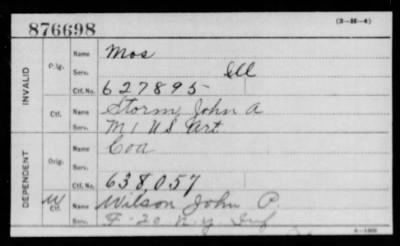 876698 (3-26-4)
INVALID Orig. Name Mos
Serv. Ill
Ctf. No. 627895
Ctf. Name Storm, John A
Serv. M 1 US Art.
DEPENDENT Orig. Name Coa
Serv.
Ctf. No. 638,057
W Ctf. Name Wilson John P.
Serv. F-20 N.Y Inf